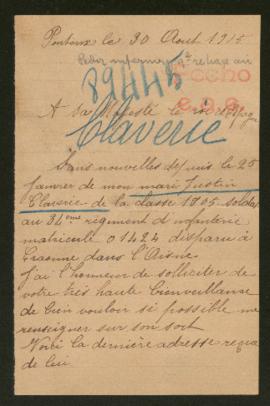 Pontoux le 30 Aout 1915
Pedir informes
89445
A sa Majesté le roi d'Espagne
Claverie
Sans nouvelles depuis le 25
Janvier de mon mari Justin
Claverie de la classe 1905 soldat
au 34eme régiment d'infanterie
matricule 01424 disparu à
Craonne dans l'Aisne
J'ai l'honneur de solliciter de
votre très haute bienveillance
de bien vouloir si possible me
renseigner sur son sort
Voici la dernière adresse reçue
de lui